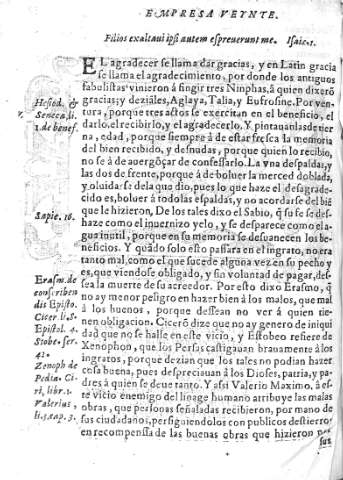 EMPRESA VEYNTE.
Filios exaltaui ipsi autem espreuerunt me. Isaie. 1.
EL agradecer se llama dar gracias, y en Latin gracia
se llama el agradecimiento, por donde los antiguos
fabulistas vinierõ a fingir tres Ninphas, à quien dixerõ
gracias; y deziales, Aglaya, Talia, y Eufrosine. Por ven-
tura, porque tres actos se exercitan en el beneficio, el
darlo, el recibirlo, y el agradecerlo. Y pintauanlas de vir
na, edad, porque siempre à de estar fresca la memoria
del bien recibido, y desnudas, porque quien lo recibio,
no se à de auergõçar de confessarlo. La vna despaldas, y
las dos de frente, porque à de boluer la merced doblada,
y oluidarse dela que dio, pues lo que haze el desagrade-
cido es, boluer à todo las espaldas, y no acordarse del biẽ
que le hizieron. De los tales dixo el Sabio, q̃ su fe se des-
haze como el inuernizo yelo, y se desparece como el a-
gua inutil, porque en su memoria se desuanecen los be-
neficios. Y quãdo solo esto passara en el ingrato, no era
tanto mal, como el que sucede alguna vez en su pecho y
es, que viendose obligado, y sin voluntad de pagar, des-
sea la muerte de su acreedor. Por esto dixo Erasmo, q̃
no ay menor peligro en hazer bien à los malos, que mal
à los buenos, porque dessean no ver à quien tie-
nen obligacion. Cicerõ dize que no ay genero de iniqui
dad que no se halle en este vicio, y Estobeo refiere de
Xenophon, que los Persas castigauan brauamente à los
ingratos, porque dezian que los tales no podian hazer
cosa buena, pues despreciauan à los Dioses, patria, y pa-
dres à quien se deue tanto. Y assi Valerio Maximo, à es-
te vicio enemigo del linage humano atribuye las malas
obras, que personas señaladas recibieron, por mano de
sus ciudadanos, persiguiendolos con publicos destierros
en recompensa de las buenas obras que hizieron por
sus
Hesiod. &
Seneca, li.
1 de benef.
Sapie. 16.
Erasm. de
conscriben
dis Episto.
Cicer li. 8.
Epistol. 4.
Stobe. ser.
42.
Zenoph de
Pedia. Ci-
ri, libr. 1.
Valerius,
li. 5. cap. 3.